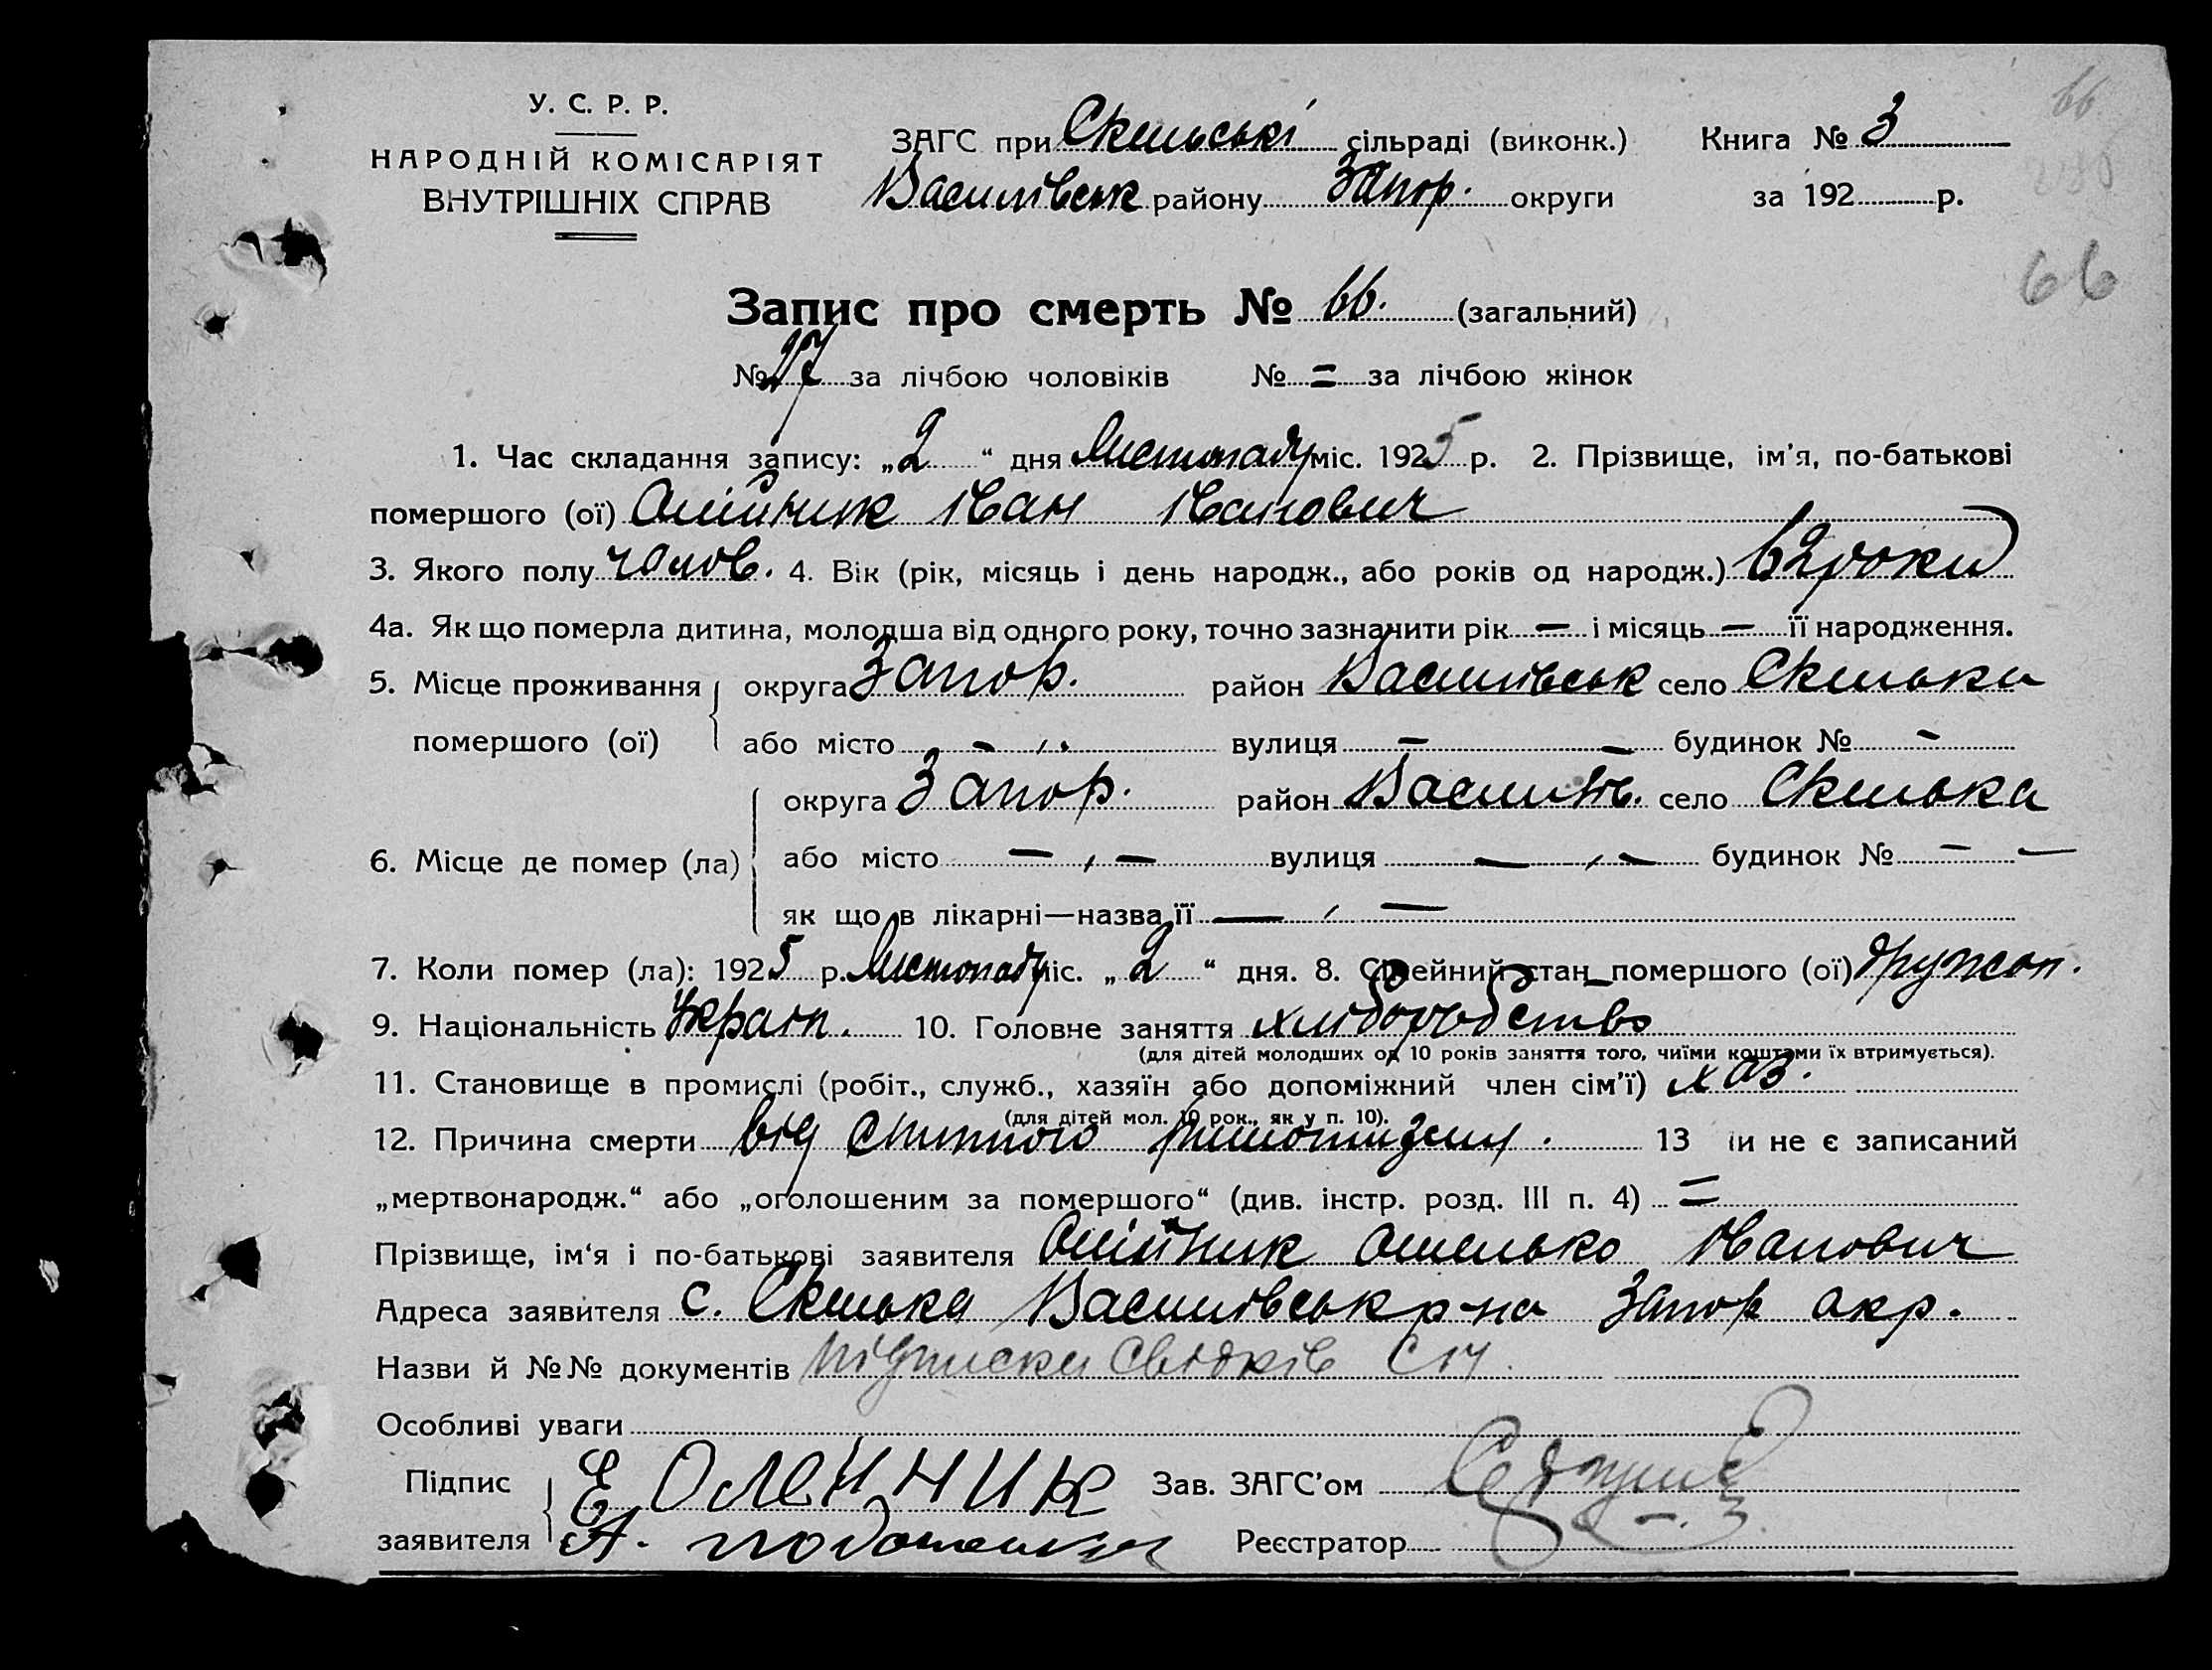 У. С. Р. Р.
НАРОДНІЙ КОМІСАРІЯТ
ВНУТРІШНІХ СПРАВ
ЗАГС при Скельські сільраді (виконк.) Книга № 3
Василівськ району Запор. округи за 192 р.
66
Запис про смерть № 66. (загальний)
№ 27 за лічбою чоловіків № = за лічбою жінок
1. Час складання запису: „2“ дня Листопаду міс. 1925 р. 2. Прізвище, ім'я, по-батькові
помершого (ої) Олійник Іван Іванович
3. Якого полу чолов. 4. Вік (рік, місяць і день народж., або років од народж.) 62 роки
4а. Як що померла дитина, молодша від одного року, точно зазначити рік — і місяць — її народження.
5. Місце проживання округа Запор. район Василівськ село Скельки
помершого (ої) або місто — „ вулиця — — будинок № -
округа Запор. район Василів. село Скелька
6. Місце де помер (ла) або місто — , — вулиця — , — будинок № — —
як що в лікарні—назва її — , —
7. Коли помер (ла): 1925 р. Листопаду міс. „2“ дня. 8. Сімейний стан помершого (ої) дружон.
9. Національність Україн. 10. Головне заняття хліборобство
(для дітей молодших од 10 років заняття того, чиїми коштами їх втримується).
11. Становище в промислі (робіт., служб., хазяїн або допоміжний член сім'ї) хаз.
(для дітей мол. 10 рок., як у п. 10).
12. Причина смерти від 13 чи не є записаний
„мертвонародж.“ або „оголошеним за помершого“ (див. інстр. розд. III п. 4) =
Прізвище, ім'я і по-батькові заявителя Олійник Омелько Іванович
Адреса заявителя с. Скелька Василівськ р-на Запор окр.
Назви й №№ документів підписки свідків
Особливі уваги
Підпис Е Олейник Зав. ЗАГС'ом
заявителя А. Реєстратор